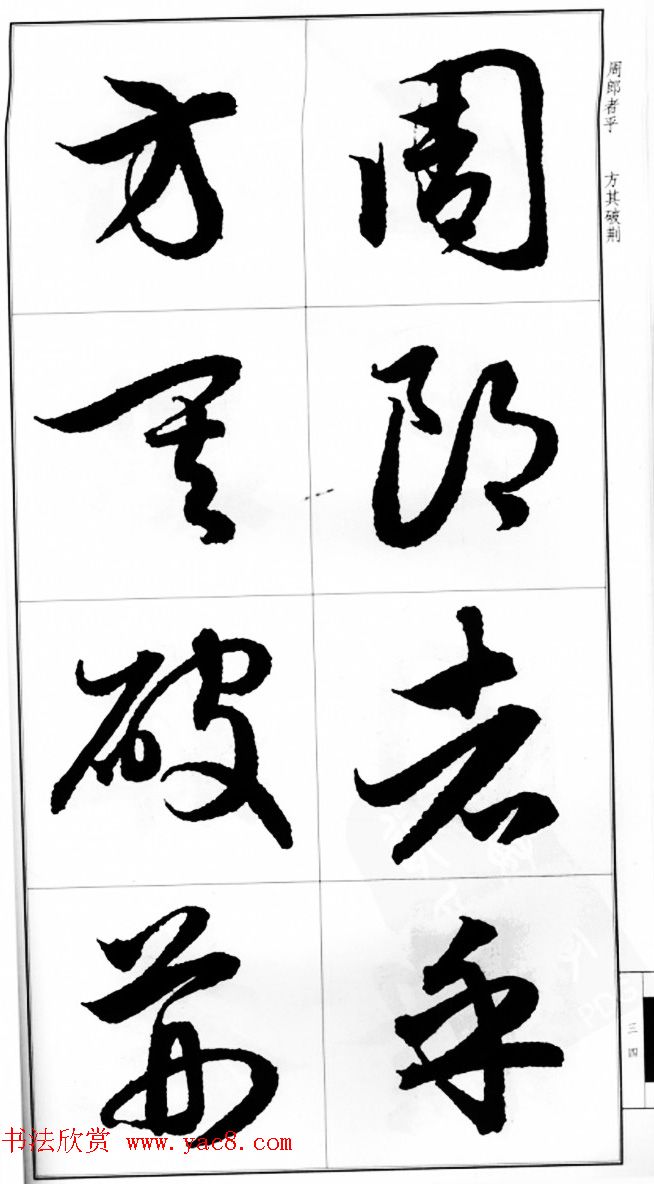 周郎者乎
方其破荆
周郎者乎 方其破荆
三四
书法欣赏 www.yac8.com